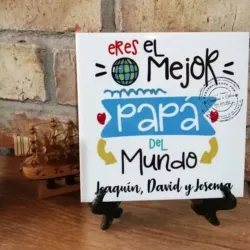 eRes eL
MeJoR
PaPá
DeL
Mundo
Joaquín, David y Josema